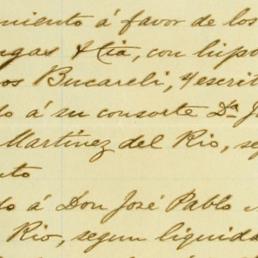 miento á favor de los
ngas & Cia, con hipo
os Bucareli, y escrit
do á su consorte Dª J
Martínez del Rio, se
nto
do á Don José Pablo
Rio, segun liquida